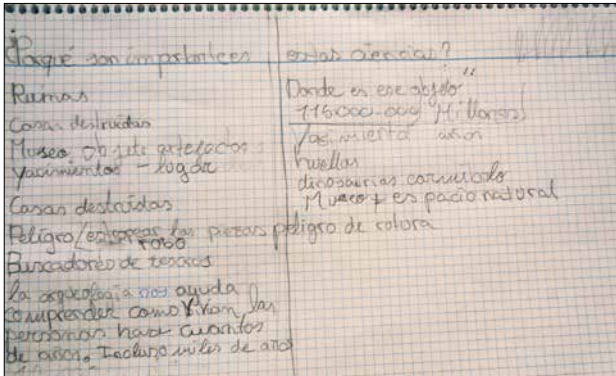 ¿Porqué son importantes estas ciencias?
Ruinas
Casas destruidas
Museo objeto artefactos
yacimientos - lugar
Casas destruidas
Peligro/estropear las piezas peligro de rotura
robo
Buscadores de tesoros
la arqueología nos ayuda
comprender como vivían las
personas hace cuantos
de años. Incluso miles de años
Donde es ese objeto
115.000.000 Millones
Yacimiento años
huellas
dinosaurios carnívolo
Museo + espacio natural